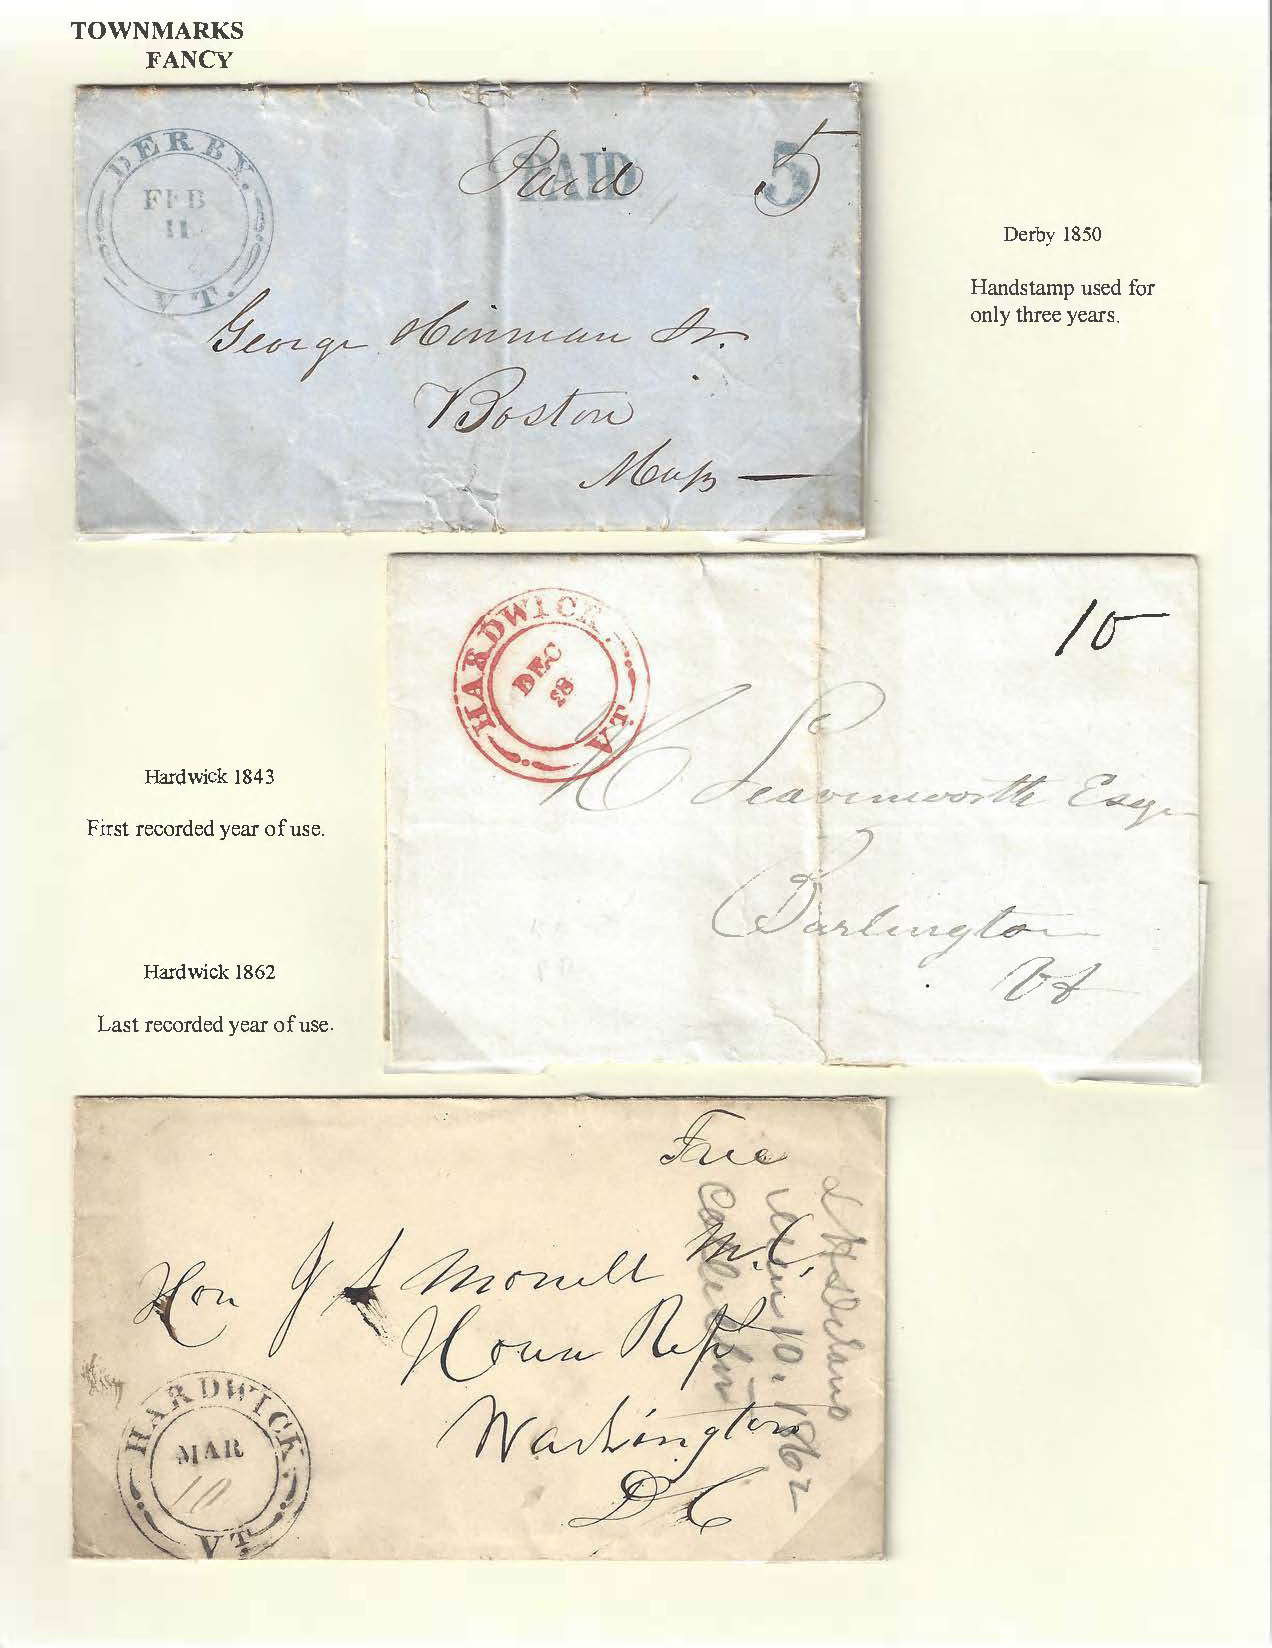 TOWNMARKS
FANCY
DERBY.
FEB
11
VT.
Paid
PAID
5
5
George Hinman Jr.
Boston
Mass
Derby 1850
Handstamp used for
only three years.
HARDWICK.
DEC
28
VT.
10
H Leavenworth Esq
Burlington
Vt
Hardwick 1843
First recorded year of use.
Hardwick 1862
Last recorded year of use.
Free
Hon J S Morrill M.C.
House Rep
Washington
DC
HARDWICK.
MAR
10
VT.
10. 1862